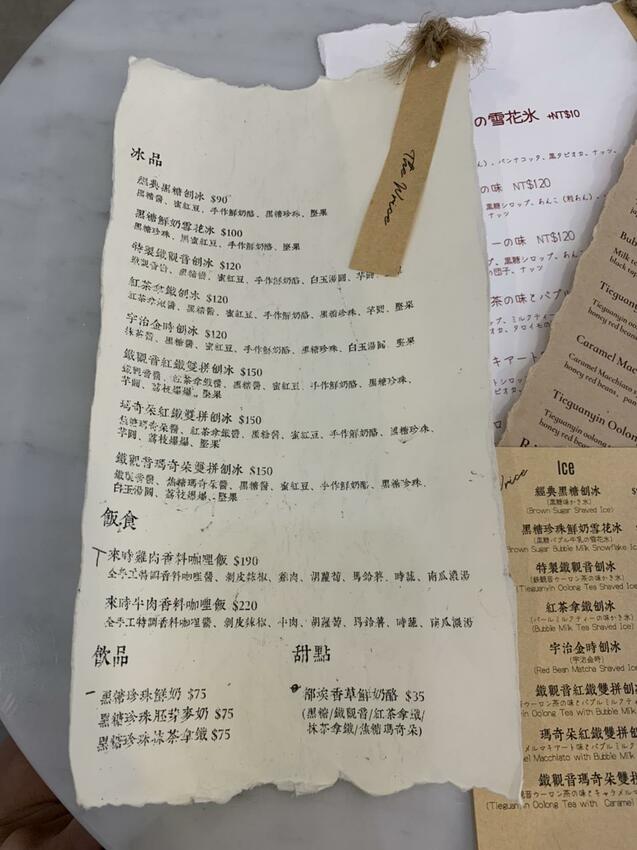 The Wrice
冰品
經典黑糖刨冰 $90
黑糖醬、蜜紅豆、手作鮮奶酪、黑糖珍珠、堅果
黑糖鮮奶雪花冰 $100
黑糖珍珠、黑蜜紅豆、手作鮮奶酪、堅果
特製鐵觀音刨冰 $120
鐵觀音醬、黑糖醬、蜜紅豆、手作鮮奶酪、白玉湯圓、芋圓、
紅茶拿鐵刨冰 $120
紅茶拿鐵醬、黑糖醬、蜜紅豆、手作鮮奶酪、黑糖珍珠、芋圓、堅果
宇治金時刨冰 $120
抹茶醬、黑糖醬、蜜紅豆、手作鮮奶酪、黑糖珍珠、白玉湯圓、堅果
鐵觀音紅鐵雙拼刨冰 $150
鐵觀音醬、紅茶拿鐵醬、黑糖醬、蜜紅豆、手作鮮奶酪、黑糖珍珠、
芋圓、荔枝爆爆、堅果
瑪奇朵紅鐵雙拼刨冰 $150
焦糖瑪奇朵醬、紅茶拿鐵醬、黑糖醬、蜜紅豆、手作鮮奶酪、黑糖珍珠、
芋圓、荔枝爆爆、堅果
鐵觀音瑪奇朵雙拼刨冰 $150
鐵觀音醬、焦糖瑪奇朵醬、黑糖醬、蜜紅豆、手作鮮奶酪、黑糖珍珠、
白玉湯圓、荔枝爆爆、堅果
飯食
來時雞肉香料咖哩飯 $190
全手工特調香料咖哩醬、剝皮辣椒、雞肉、胡蘿蔔、馬鈴薯、時蔬、南瓜濃湯
來時牛肉香料咖哩飯 $220
全手工特調香料咖哩醬、剝皮辣椒、牛肉、胡蘿蔔、馬鈴薯、時蔬、南瓜濃湯
飲品
黑糖珍珠鮮奶 $75
黑糖珍珠胚芽麥奶 $75
黑糖珍珠抹茶拿鐵 $75
甜點
鄒族香草鮮奶酪 $35
(黑糖/鐵觀音/紅茶拿鐵/
抹茶拿鐵/焦糖瑪奇朵)
の雪花氷 +NT$10
ん)、パンナコッタ、黒タピオカ、ナッツ、
の味 NT$120
黒糖シロップ、あんこ (粒あん)、
ナッツ
ーの味 NT$120
、黒糖シロップ、あんこ
の団子、ナッツ
茶の味とバブル
Milk te
black tap
Tieguanyin
Tieguanyin Oolong
honey red beans,
Caramel Mac
Caramel Macchiato
honey red beans, pan
Tieguanyin Oolong
Tieguanyin oolong
honey red bean
Wrice
Ice
經典黑糖刨冰
(黒糖味かき氷)
(Brown Sugar Shaved Ice)
黑糖珍珠鮮奶雪花冰
(黒糖バブル牛乳の雪花氷)
Brown Sugar Bubble Milk Snowflake Ic
特製鐵觀音刨冰
(鉄観音ウーロン茶の味かき氷)
(Tieguanyin Oolong Tea Shaved Ice
紅茶拿鐵刨冰
(パールミルクティーの味かき氷)
(Bubble Milk Tea Shaved Ice)
宇治金時刨冰
(宇治金時)
(Red Bean Matcha Shaved Ice
鐵觀音紅鐵雙拼刨
ウーロン茶の味とバブルミルクティ
in Oolong Tea with Bubble Milk
瑪奇朵紅鐵雙拼刨
メルマキアート味とバブルミルク
el Macchiato with Bubble Milk
鐵觀音瑪奇朵雙
観音ウーロン茶の味とキャラメルマ
(Tieguanyin Oolong Tea with Caramel